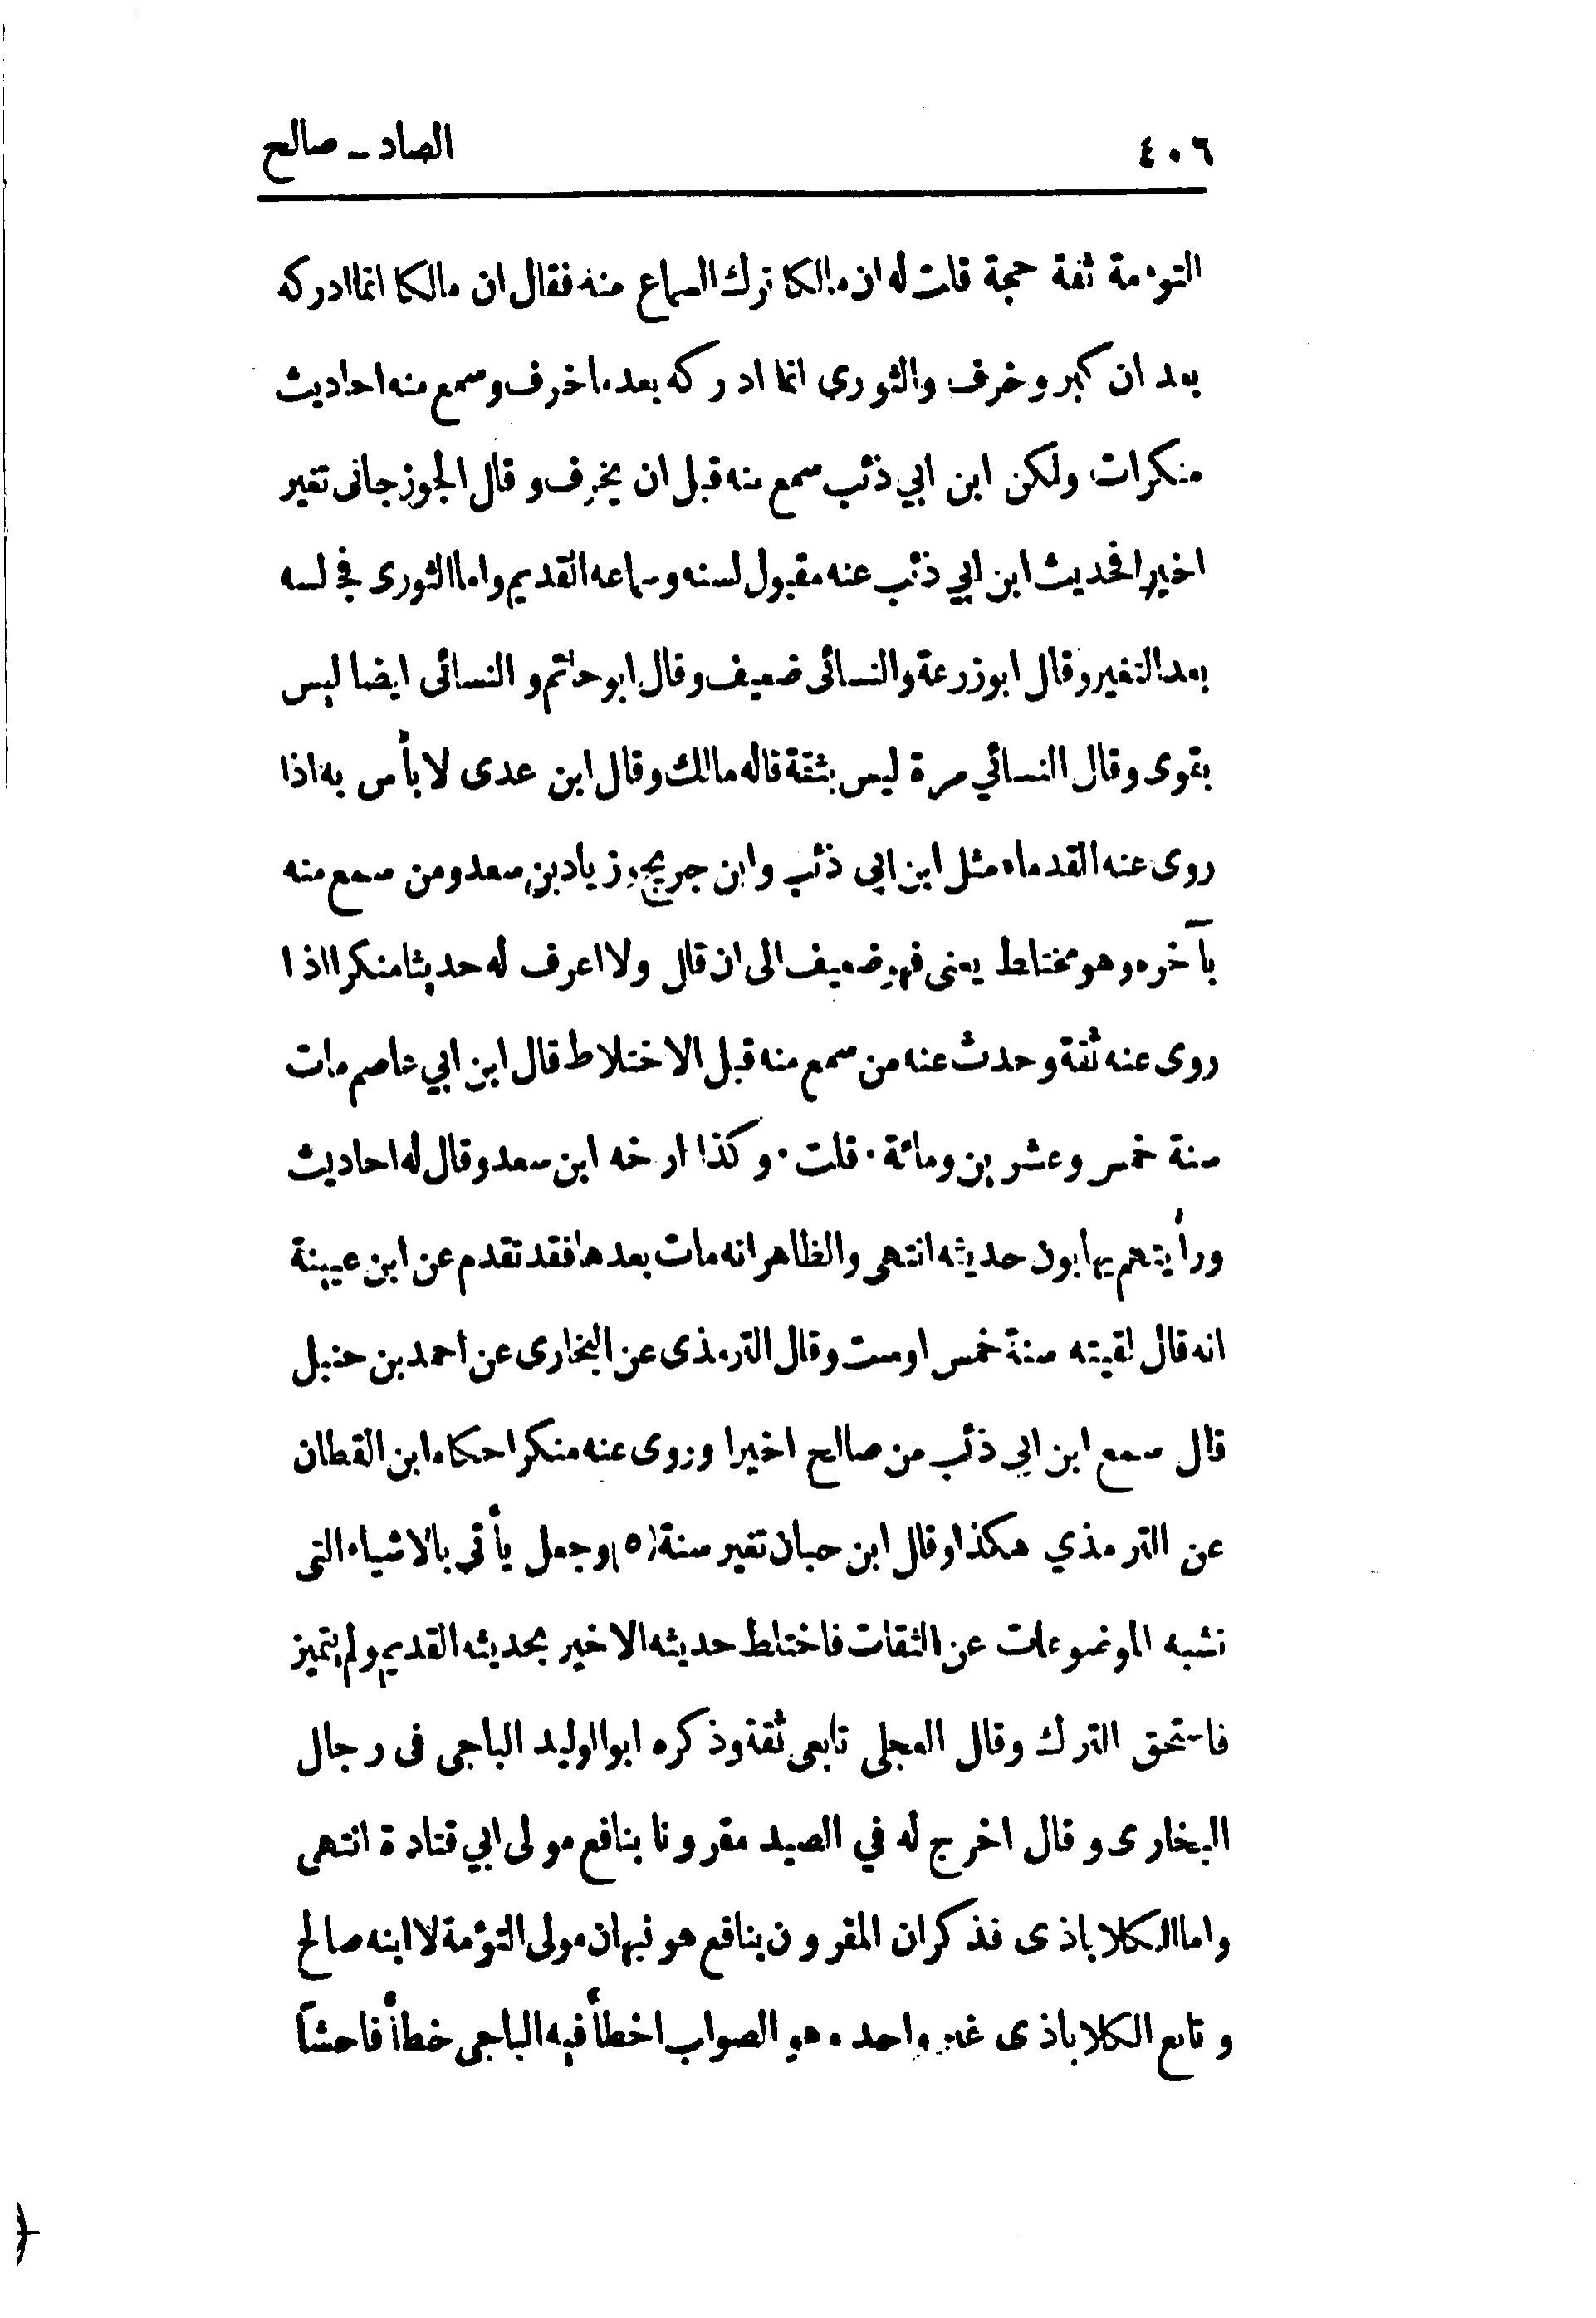 ٤٠٦
الصاد ـ صالح
التوءمة ثقة حجة قلت له ان مالكا ترك السماع منه فقال ان مالكا انما ادركه
بعد ان كبر وخرف والثورى انما ادركه بعد ما خرف وسمع منه احاديث
منكرات ولكن ابن ابي ذئب سمع منه قبل ان يخرف وقال الجوزجانى تغير
اخيرا فحديث ابن ابي ذئب عنه مقبول لسنه وسماعه القديم واما الثورى فجالسه
بعد التغير وقال ابو زرعة والنسائى ضعيف وقال ابو حاتم والنسائى ايضا ليس
بقوى وقال النسائي مرة ليس بثقة قاله مالك وقال ابن عدى لا بأس به اذا
روى عنه القدماء مثل ابن ابى ذئب وابن جريج وزياد بن سعد ومن سمع منه
بآخره وهو مختلط يعنى فهو ضعيف الى ان قال ولا اعرف له حديثا منكرا اذا
روى عنه ثقة وحدث عنه من سمع منه قبل الاختلاط قال ابن ابي عاصم مات
سنة خمس وعشرين ومائة · قلت · وكذا ارخه ابن سعد وقال له احاديث
ورأيتهم يهابون حديثه انتهى والظاهر انه مات بعدها فقد تقدم عن ابن عيينة
انه قال لقيته سنة خمس او ست وقال الترمذى عن البخارى عن احمد بن حنبل
قال سمع ابن ابي ذئب من صالح اخيرا وروى عنه منكرا حكاه ابن القطان
عن الترمذي هكذا وقال ابن حبان تغير سنة (٥) وجعل يأتى بالاشياء التى
تشبه الموضوعات عن الثقات فاختلط حديثه الاخير بحديثه القديم ولم يتميز
فاستحق الترك وقال العجلى تابعى ثقة وذكره ابو الوليد الباجى فى رجال
البخارى وقال اخرج له في الصيد مقرونا بنافع مولى ابي قتادة انتهى
واما الكلاباذى فذكر ان المقرون بنافع هو نبهان مولى التوءمة لا ابنه صالح
وتابع الكلاباذى غير واحد وهو الصواب اخطأ فيه الباجى خطأً فاحشاً